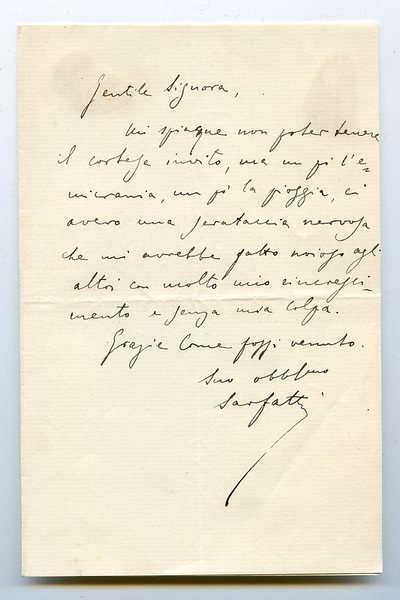 Gentile Signora,
Mi spiaque non poter tenere
il cortese invito, ma un pò l'e-
micrania, un pò la pioggia, ci
avevo una serataccia nervosa
che mi avrebbe fatto noioso agl'
altri con molto mio rincresci-
mento e senza mia colpa.
Grazie come fossi venuto.
Suo obblmo
Sarfatti